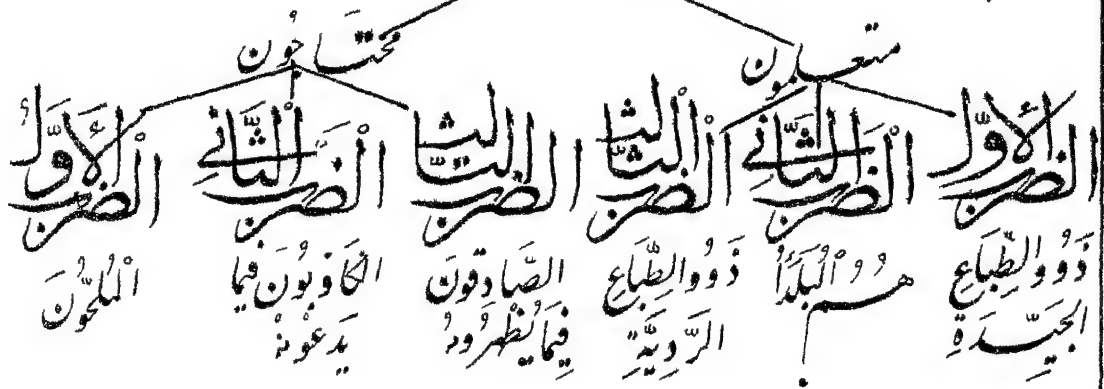 متعلمون
محتاجون
الضرب الأوّل
ذَوُو الطِّبَاعِ
الجَيِّدَةِ
الضَّرب الثَّانِي
هُمُ الْبُلَدَأُ
الضرب الثالث
ذَوُو الطِّبَاعِ
الرَّدِيَّةِ
الضرب الثالث
الصَّادِقُونَ
فِيمَا يُظْهِرُونَهُ
الضَّرب الثَّانِي
الكَاذِبُونَ فِيمَا
يَدعُونَهُ
الضرب الأَوَّلُ
الْمُلِحُّونَ